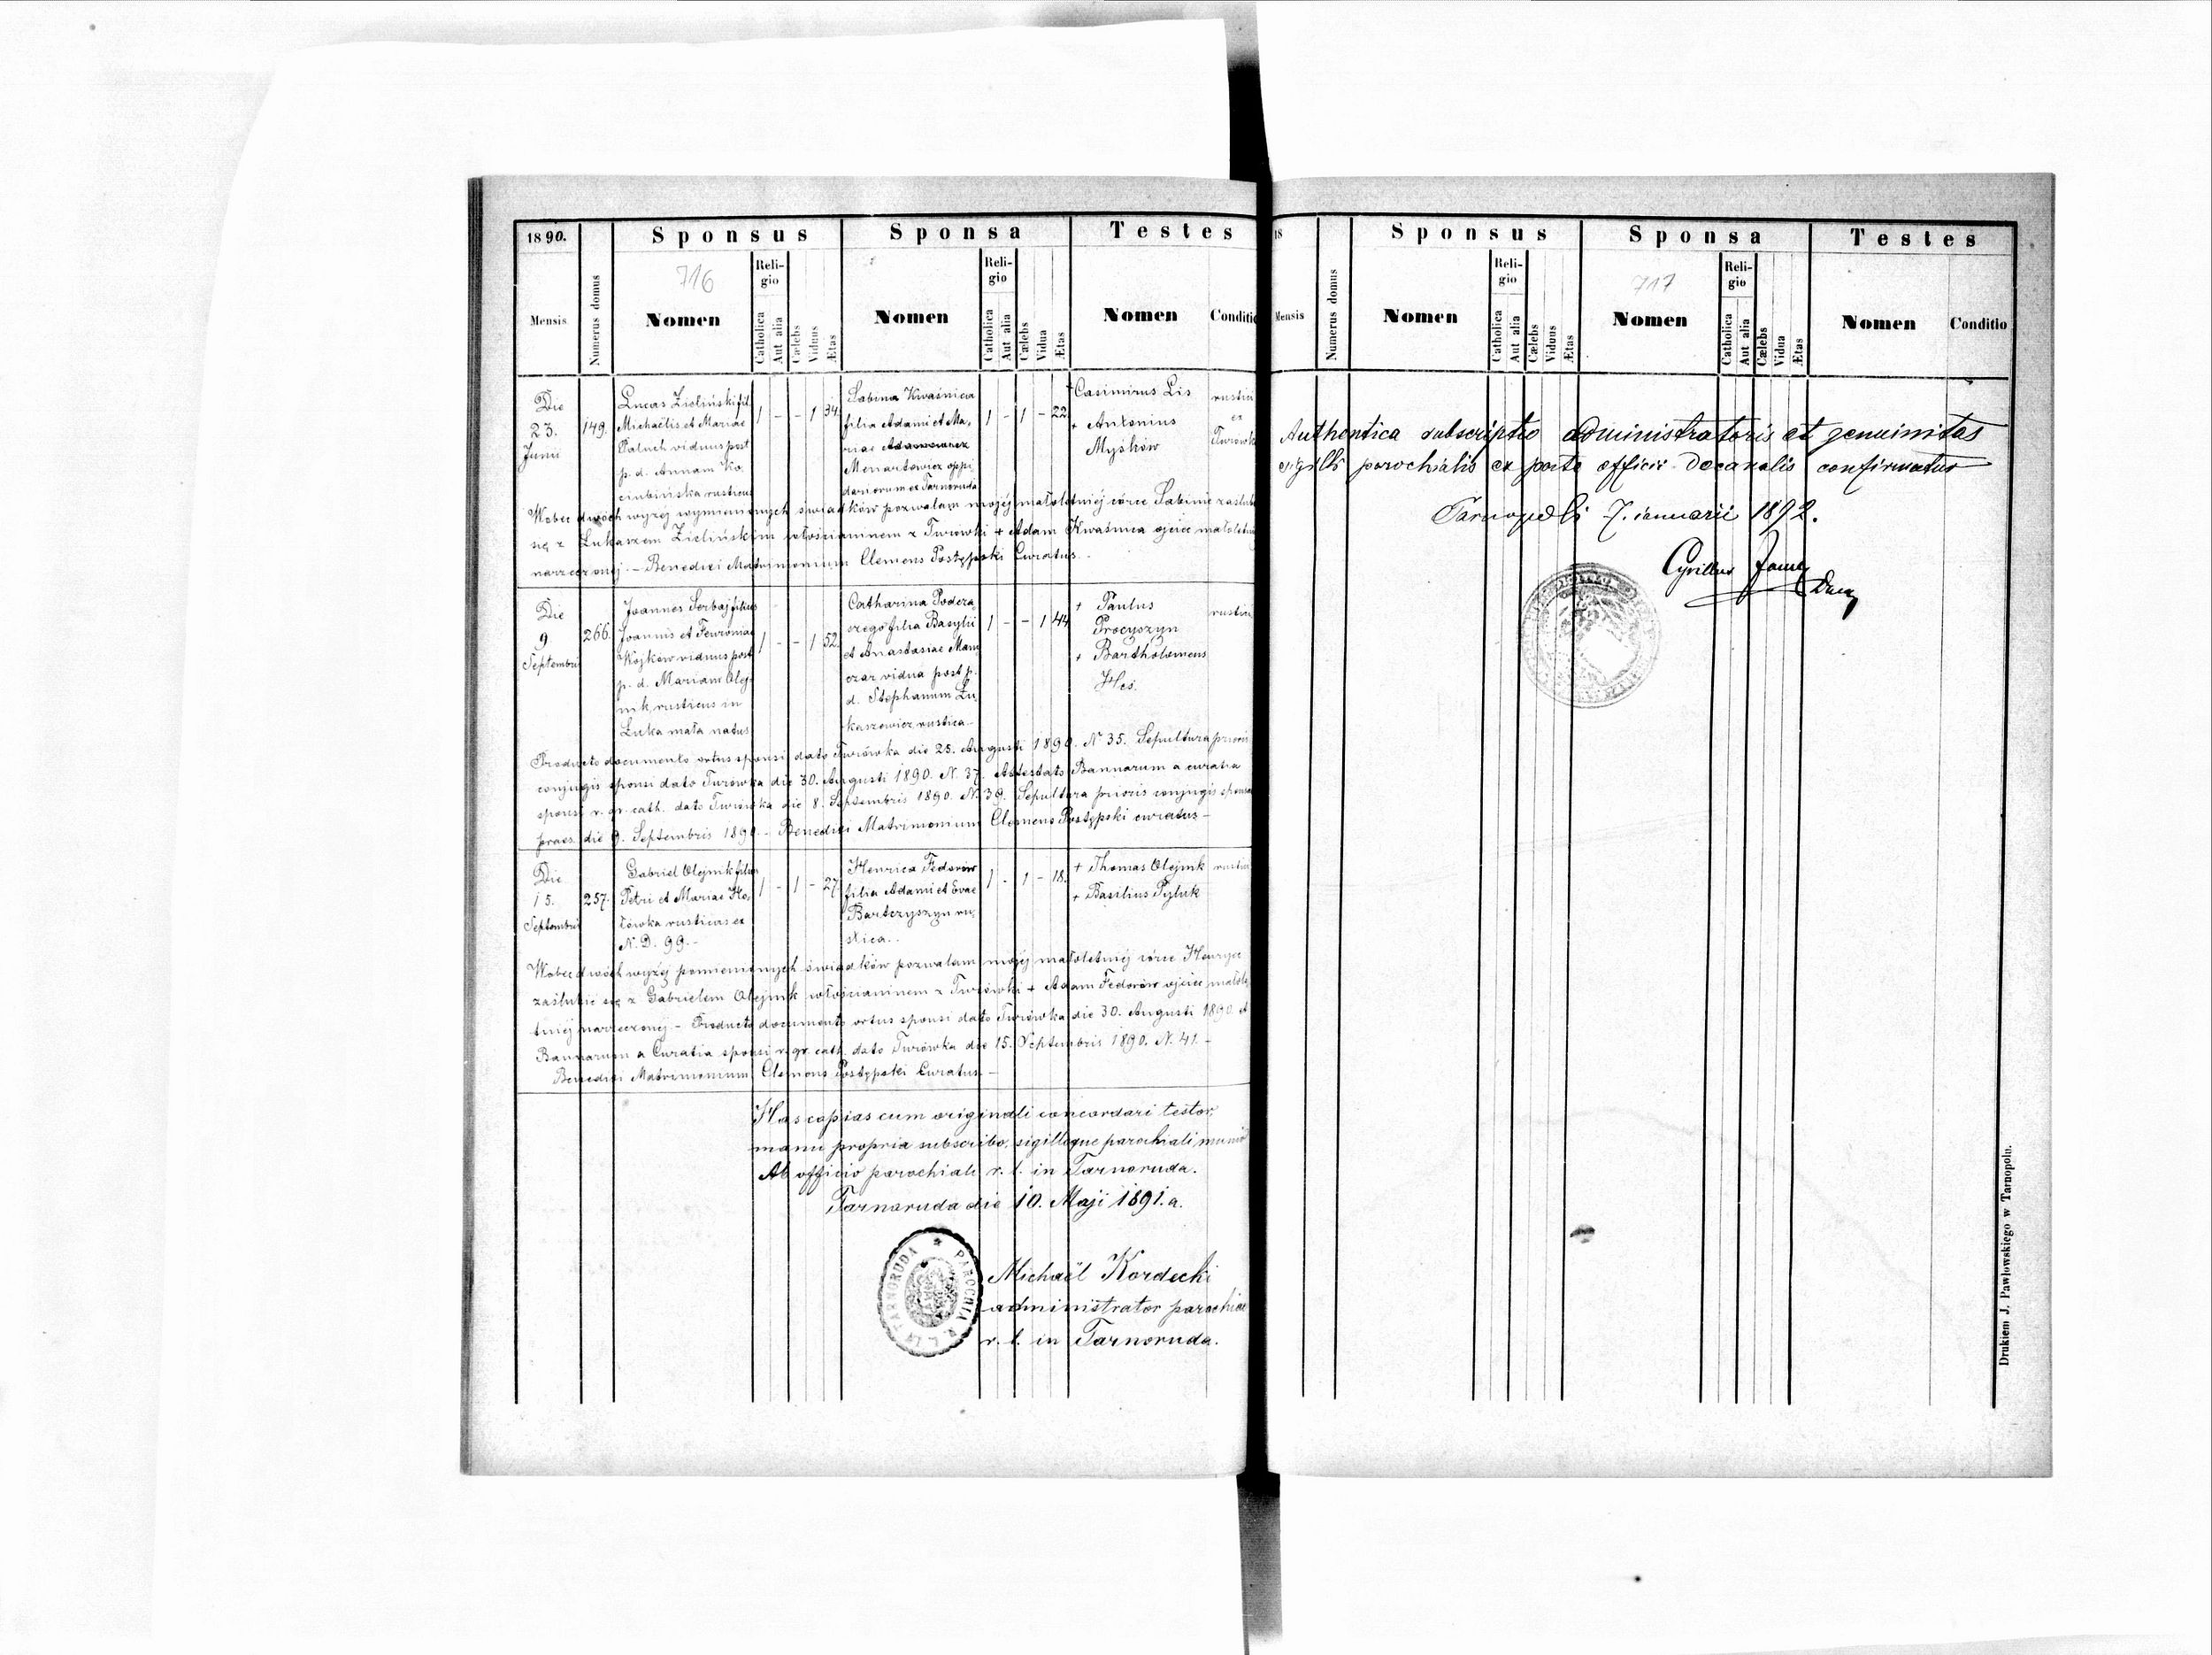 1890.
Sponsus
Sponsa
Testes
716
Mensis
Numerus domus
Nomen
Religio
Catholica
Aut alia
Cælebs
Viduus
Ætas
Nomen
Religio
Catholica
Aut alia
Cælebs
Vidua
Ætas
Nomen
Conditio
Die
23.
Junii
149.
Lucas Zieliński fil.
Michaëlis et Mariae
Paluch viduus post
p. d. Annam Ko-
ciubińska rusticus
1 - - 1 34.
Sabina Kwaśnica
filia Adami et Ma-
riae
Menartowicz oppi-
dariorum ex Tarnoruda
1 - 1 - 22.
+ Casimirus Lis
+ Antonius
Myśków
rustici
ex
Turówk
Wobec dwóch wyżej wymienionych świadków pozwalam mojéj małoletniéj córce Sabinie zaślubi
się z Łukaszem Zielińskim włościaninem z Turówki + Adam Kwaśnica ojciec małoletni
narzeczonéj. - Benedixi Matrimonium Clemens Postępski Curatus.
Die
9
Septembris
266.
Joannes Serbaj filius
Joannis et Fewroniae
Kojków viduus post
p. d. Mariam Olej-
nik, rusticus in
Łuka mała natus
1 - - 1 52.
Catharina Podcza-
szego filia Basylii
et Anastasiae Man-
czar vidua post p.
d. Stephanum Łu-
kaszewicz rustica -
1 - - 1 44
+ Paulus
Procyszyn
+ Bartholomeus
Heś.
rustici
Producto documento ortus sponsi dato Turówka die 25. Augusti 1890. N 35. Sepultura prioris
conjugis sponsi dato Turówka die 30. Augusti 1890. N. 37. Attestato Bannorum a curatia
sponsi r. gr. cath. dato Turówka die 8. Septembris 1890. N. 38. Sepultura prioris conjugis sponsae
praes. die 9. Septembris 1890. - Benedixi Matrimonium Clemens Postępski curatus -
Die
15.
Septembris
257.
Gabriel Olejnik filius
Petri et Mariae Ho-
łówka rusticus ex
N. D. 99. -
1 - 1 - 27.
Henrica Fedorów
filia Adami et Evae
Bartczyszyn ru-
stica. .
1 - 1 - 18.
+ Thomas Olejnik
+ Basilius Pyluk
rustici
Wobec dwóch wyżéj pomienionych świadków pozwalam mojéj małoletniéj córce Henryce
zaślubić się z Gabrielem Olejnik włościaninem z Turówki + Adam Fedorów ojciec małole-
tniéj narzeczonéj - Producto documento ortus sponsi dato Turówka die 30. Augusti 1890. et
Bannorum a Curatia sponsi r. gr. cath. dato Turówka die 15. Septembris 1890. N. 41. -
Benedixi Matrimonium Clemens Postępski Curatus. -
Has copias cum originali concordari testor,
manu propria subscribo, sigilloque parochiali munio
Ab officio parochiali r. l. in Tarnoruda.
Tarnoruda die 10. Maji 1891. a.
PAROCHIA R. L. IN TARNORUDA
Michaël Kordecki
administrator parochiae
r. l. in Tarnoruda.
18
Sponsus
Sponsa
Testes
717
Mensis
Numerus domus
Nomen
Religio
Catholica
Aut alia
Cælebs
Viduus
Ætas
Nomen
Religio
Catholica
Aut alia
Cælebs
Vidua
Ætas
Nomen
Conditio
Authentica subscriptio administratoris et genuinitas
sigilli parochialis ex parte officii decanalis confirmatur
Tarnopoli 7. januarii 1892.
Cyrillus
Drukiem J. Pawłowskiego w Tarnopolu.